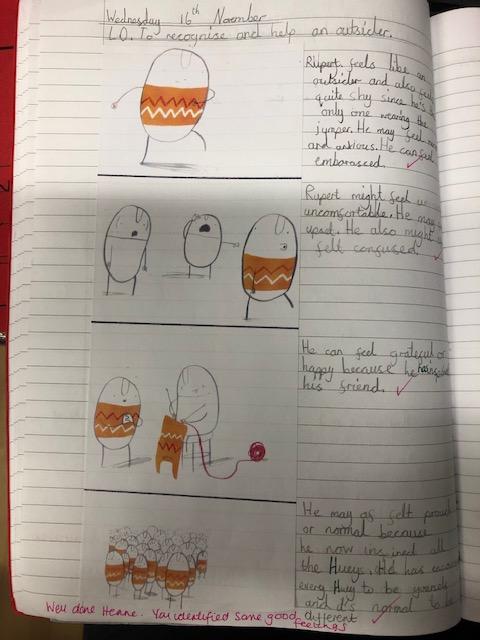 Wednesday 16th November
L.O. To recognise and help an outsider.
Rupert feels like an
outsider and also
quite shy since he's
only one wearing the
jumper. He may feel
and anxious. He can feel
embarassed.
Rupert might feel
uncomfortable. He may
upset. He also might
felt confused.
He can feel grateful or
happy because he
his friend.
He may of felt proud
or normal because
he now inspired all
the Hueys. He has
every Huey to be
and it's normal to
different
Well done Henne. You identified some good feelings